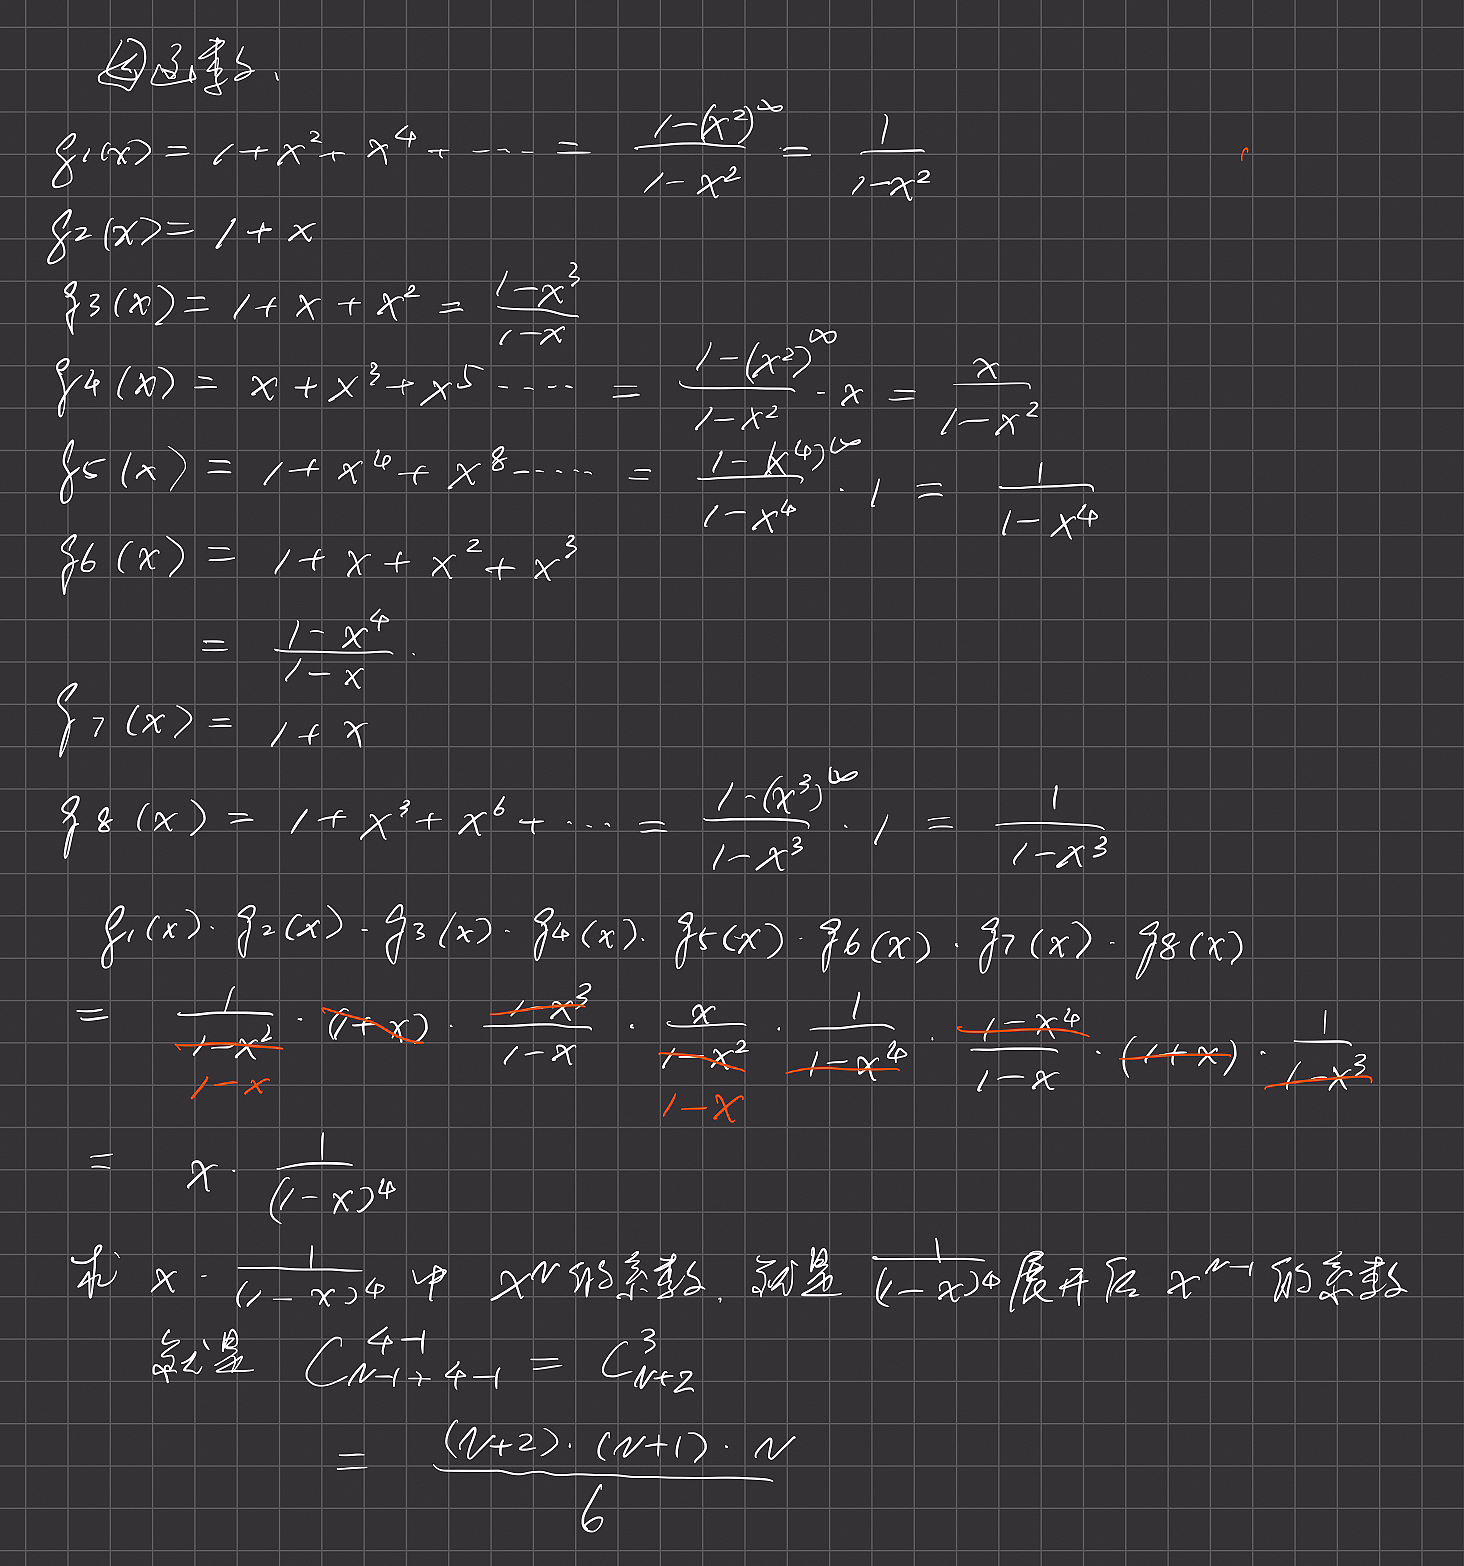 母函数.
g1(x) = 1 + x² + x⁴ + ····· = (1-(x²)^∞)/(1-x²) = 1/(1-x²)
g2(x) = 1 + x
g3(x) = 1 + x + x² = (1-x³)/(1-x)
g4(x) = x + x³ + x⁵ ····· = (1-(x²)^∞)/(1-x²) · x = x/(1-x²)
g5(x) = 1 + x⁴ + x⁸ ····· = (1-(x⁴)^∞)/(1-x⁴) · 1 = 1/(1-x⁴)
g6(x) = 1 + x + x² + x³
= (1-x⁴)/(1-x) .
g7(x) = 1 + x
g8(x) = 1 + x³ + x⁶ + ··· = (1-(x³)^∞)/(1-x³) · 1 = 1/(1-x³)
g1(x) · g2(x) · g3(x) · g4(x) · g5(x) · g6(x) · g7(x) · g8(x)
= 1/(1-x²) · (1+x) · (1-x³)/(1-x) · x/(1-x²) · 1/(1-x⁴) · (1-x⁴)/(1-x) · (1+x) · 1/(1-x³)
1-x 1-x
= x · 1/(1-x)⁴
求 x · 1/(1-x)⁴ 中 x^N 的系数, 就是 1/(1-x)⁴ 展开后 x^(N-1) 的系数
就是 C_{N-1+4-1}^{4-1} = C_{N+2}^{3}
= ((N+2)·(N+1)·N)/6